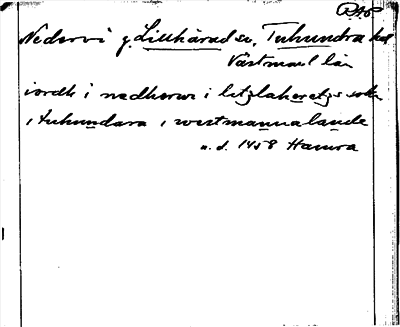 RAP
Nedervi g. Lillhärad sn, Tuhundra hd
Västmanl län
iordh i nædherwi i litzlahæretzs sokn
i tuhundara i westmannalande
u. d. 1458 Hamra